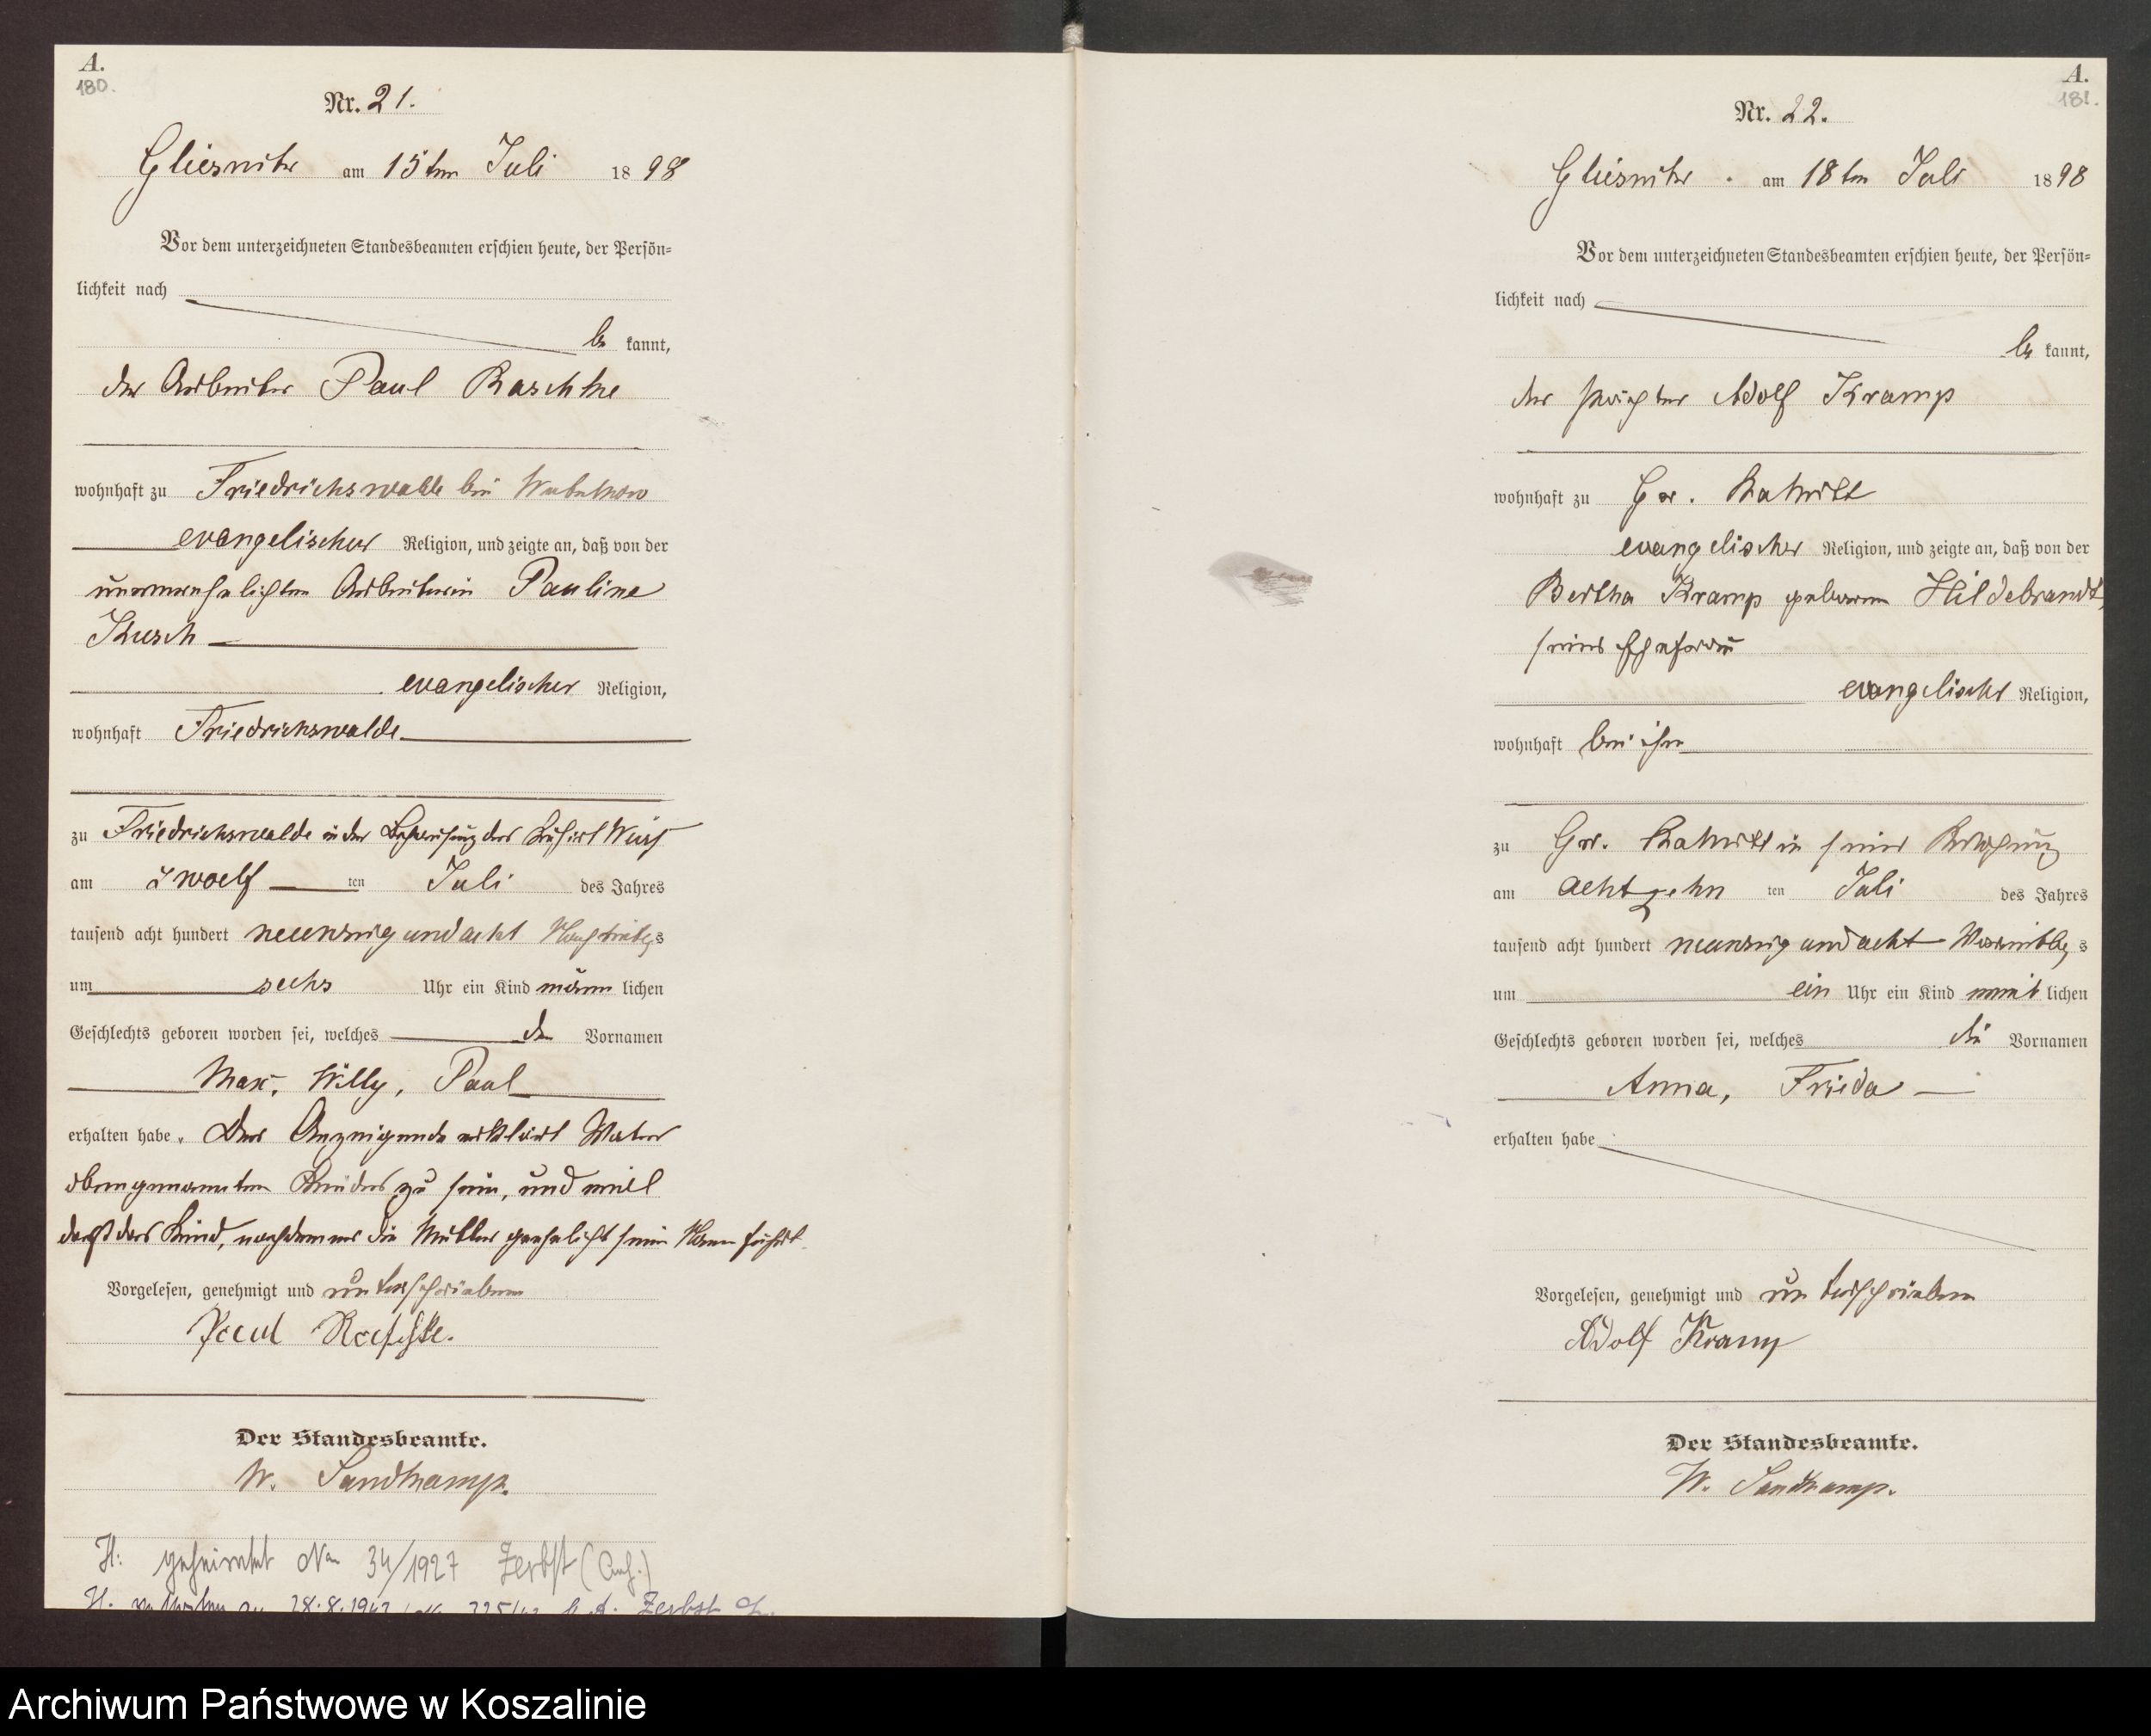 A.
180.
Nr. 21.
Gliesnitz am 15ten Juli 1898
Vor dem unterzeichneten Standesbeamten erschien heute, der Persön=
lichkeit nach
be kannt,
der Arbeiter Paul Raschke
wohnhaft zu Friedrichswalde bei
evangelischer Religion, und zeigte an, daß von der
unverehelichten Arbeiterin Pauline
Kusch
evangelischer Religion,
wohnhaft Friedrichswalde
zu Friedrichswalde in der Behausung des
am zwoelf ten Juli des Jahres
tausend acht hundert neunzig und acht Nachmittags
um sechs Uhr ein Kind männ lichen
Geschlechts geboren worden sei, welches die Vornamen
Max, Willy, Paul
erhalten habe. Der Anzeigende erklärt Vater
obengenannten Kindes zu sein, und will
daß das Kind, nachdem er die Mutter geehelicht seinen Namen führt.
Vorgelesen, genehmigt und unterschrieben
Paul Raschke.
Der Standesbeamte.
W. Sandkamp.
H: geheiratet No 34/1927 Zerbst (Anh.)
28.8.1942 Zerbst
A.
181.
Nr. 22.
Gliesnitz am 18ten Juli 1898
Vor dem unterzeichneten Standesbeamten erschien heute, der Persön=
lichkeit nach
be kannt,
der Pächter Adolf Kramp
wohnhaft zu Gr. Rakitt
evangelischer Religion, und zeigte an, daß von der
Bertha Kramp geborenen Hildebrandt,
seiner Ehefrau
evangelischer Religion,
wohnhaft bei ihm
zu Gr. Rakitt in seiner Wohnung
am achtzehn ten Juli des Jahres
tausend acht hundert neunzig und acht Vormittags
um ein Uhr ein Kind weib lichen
Geschlechts geboren worden sei, welches die Vornamen
Anna, Frieda
erhalten habe
Vorgelesen, genehmigt und unterschrieben
Adolf Kramp
Der Standesbeamte.
W. Sandkamp.
Archiwum Państwowe w Koszalinie